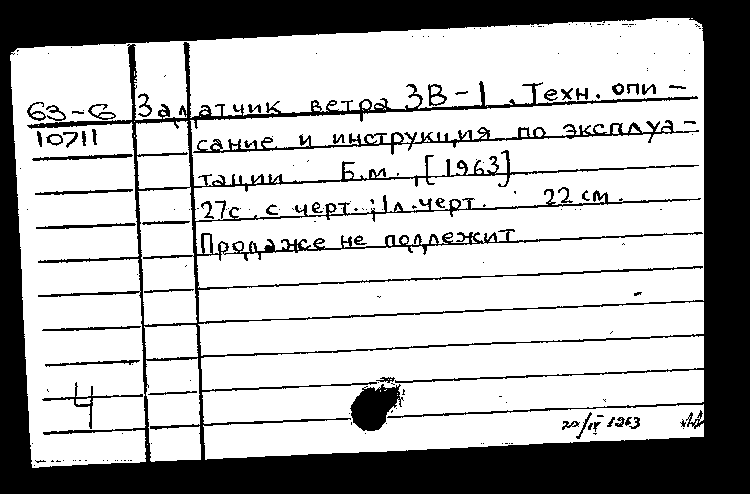 63-6 Задатчик ветра ЗВ-1. Техн. опи-
10711 сание и инструкция по эксплуа-
тации. Б.м., [1963]
27с. с черт.; 1л. черт. 22 см.
Продаже не подлежит
4
20/IX 1963